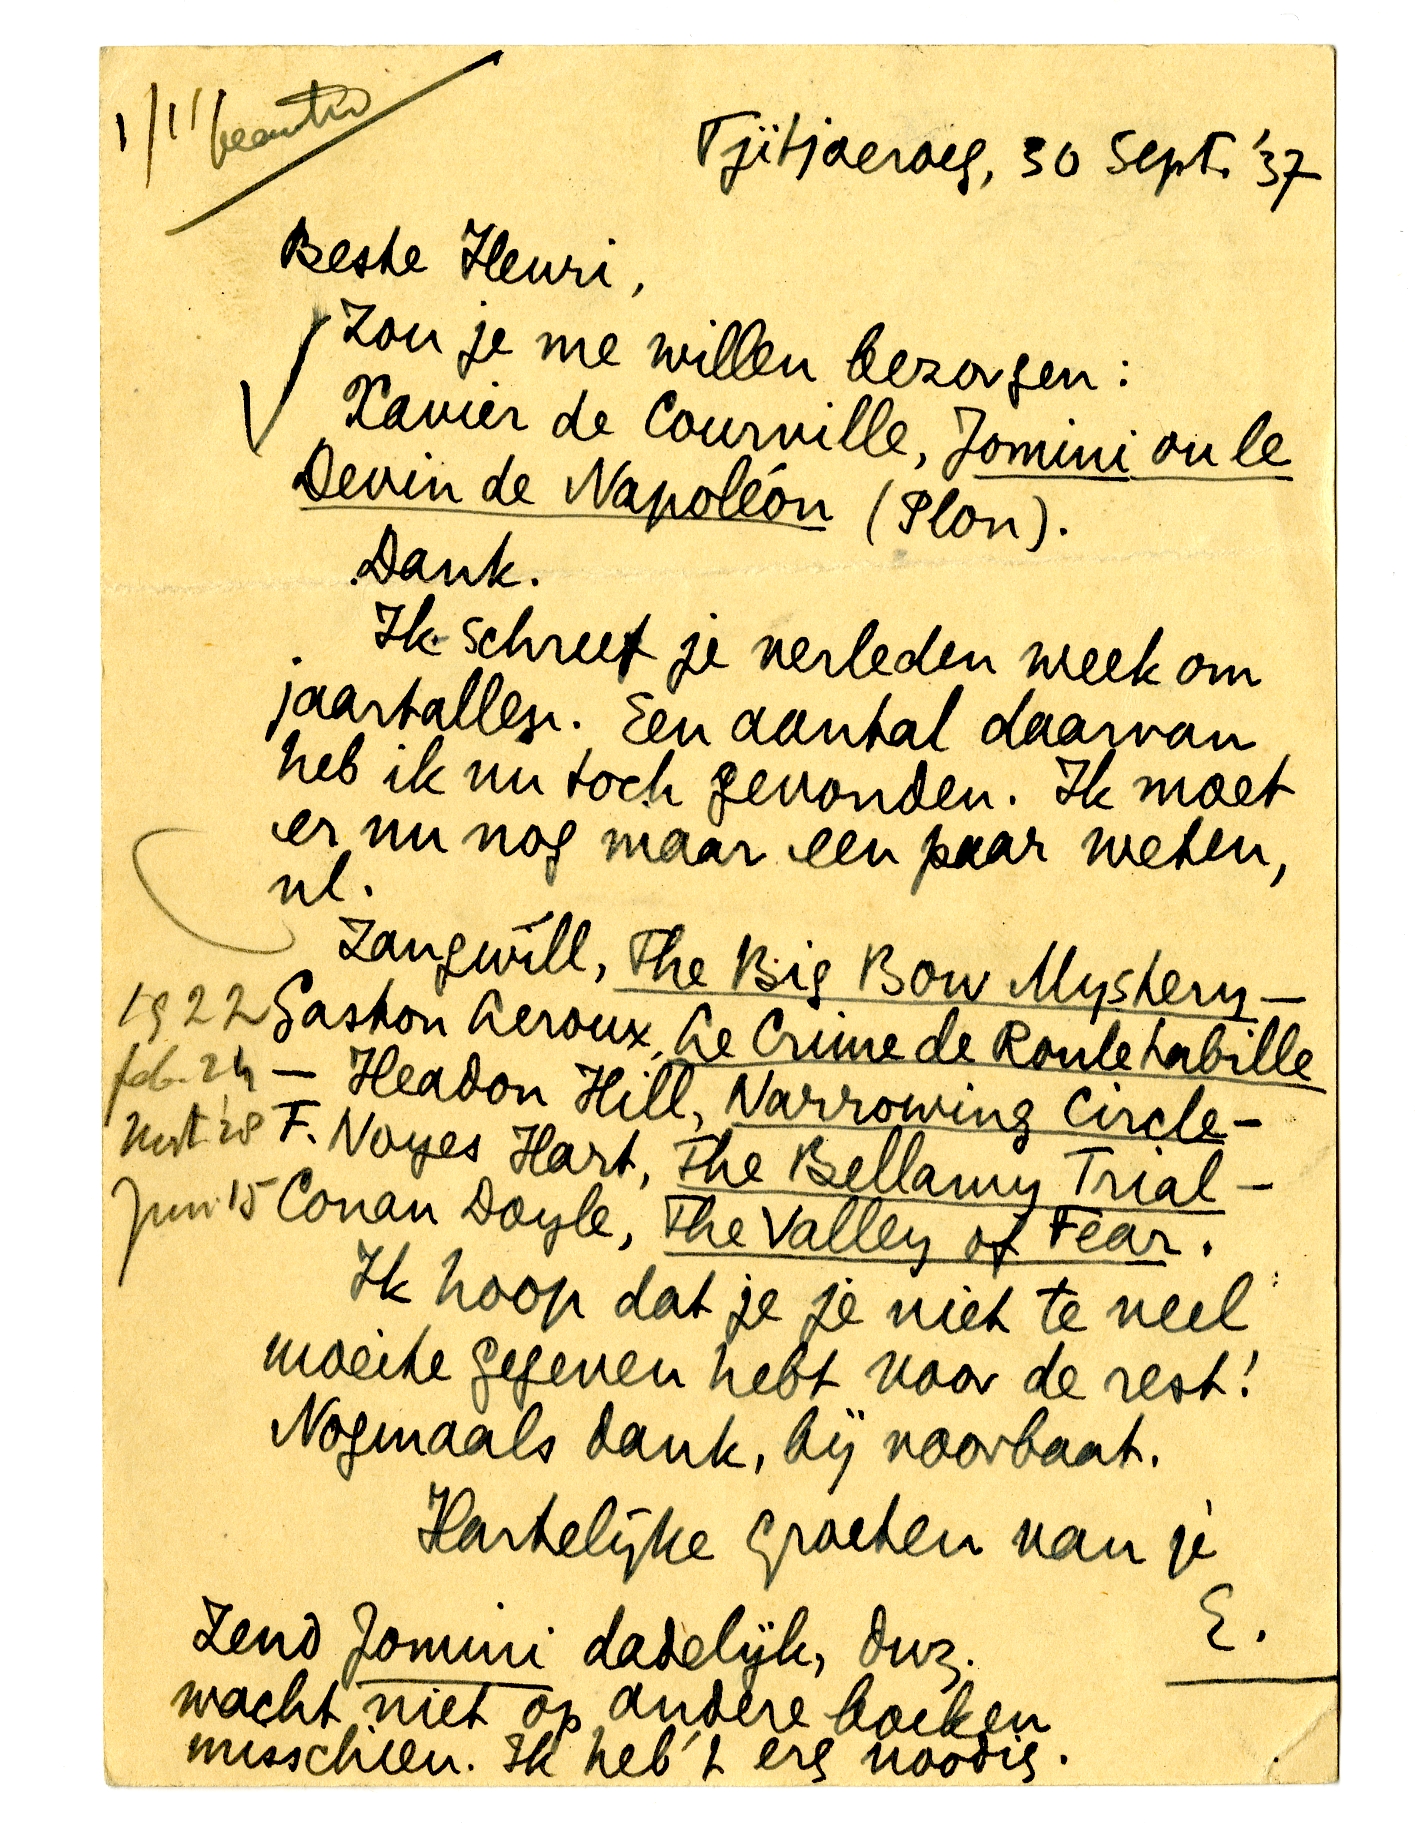 1/11 beantw
Tjitjoeroeg, 30 Sept. '37
Beste Henri,
Zou je me willen bezorgen:
Xavier de Courville, Jomini ou le
Devin de Napoléon (Plon).
Dank.
Ik schreef je verleden week om
jaartallen. Een aantal daarvan
heb ik nu toch gevonden. Ik moet
er nu nog maar een paar weten,
nl.
Zangwill, The Big Bow Mystery –
1922 Gaston Leroux, Le Crime de Rouletabille
feb. 24 – Headon Hill, Narrowing Circle –
'28 F. Noyes Hart, The Bellamy Trial –
Jun '15 Conan Doyle, The Valley of Fear.
Ik hoop dat je je niet te veel
moeite gegeven hebt voor de rest!
Nogmaals dank, bij voorbaat.
Hartelijke groeten van je
E.
Zend Jomini dadelijk, dwz.
wacht niet op andere boeken
misschien. Ik heb 't erg noodig.